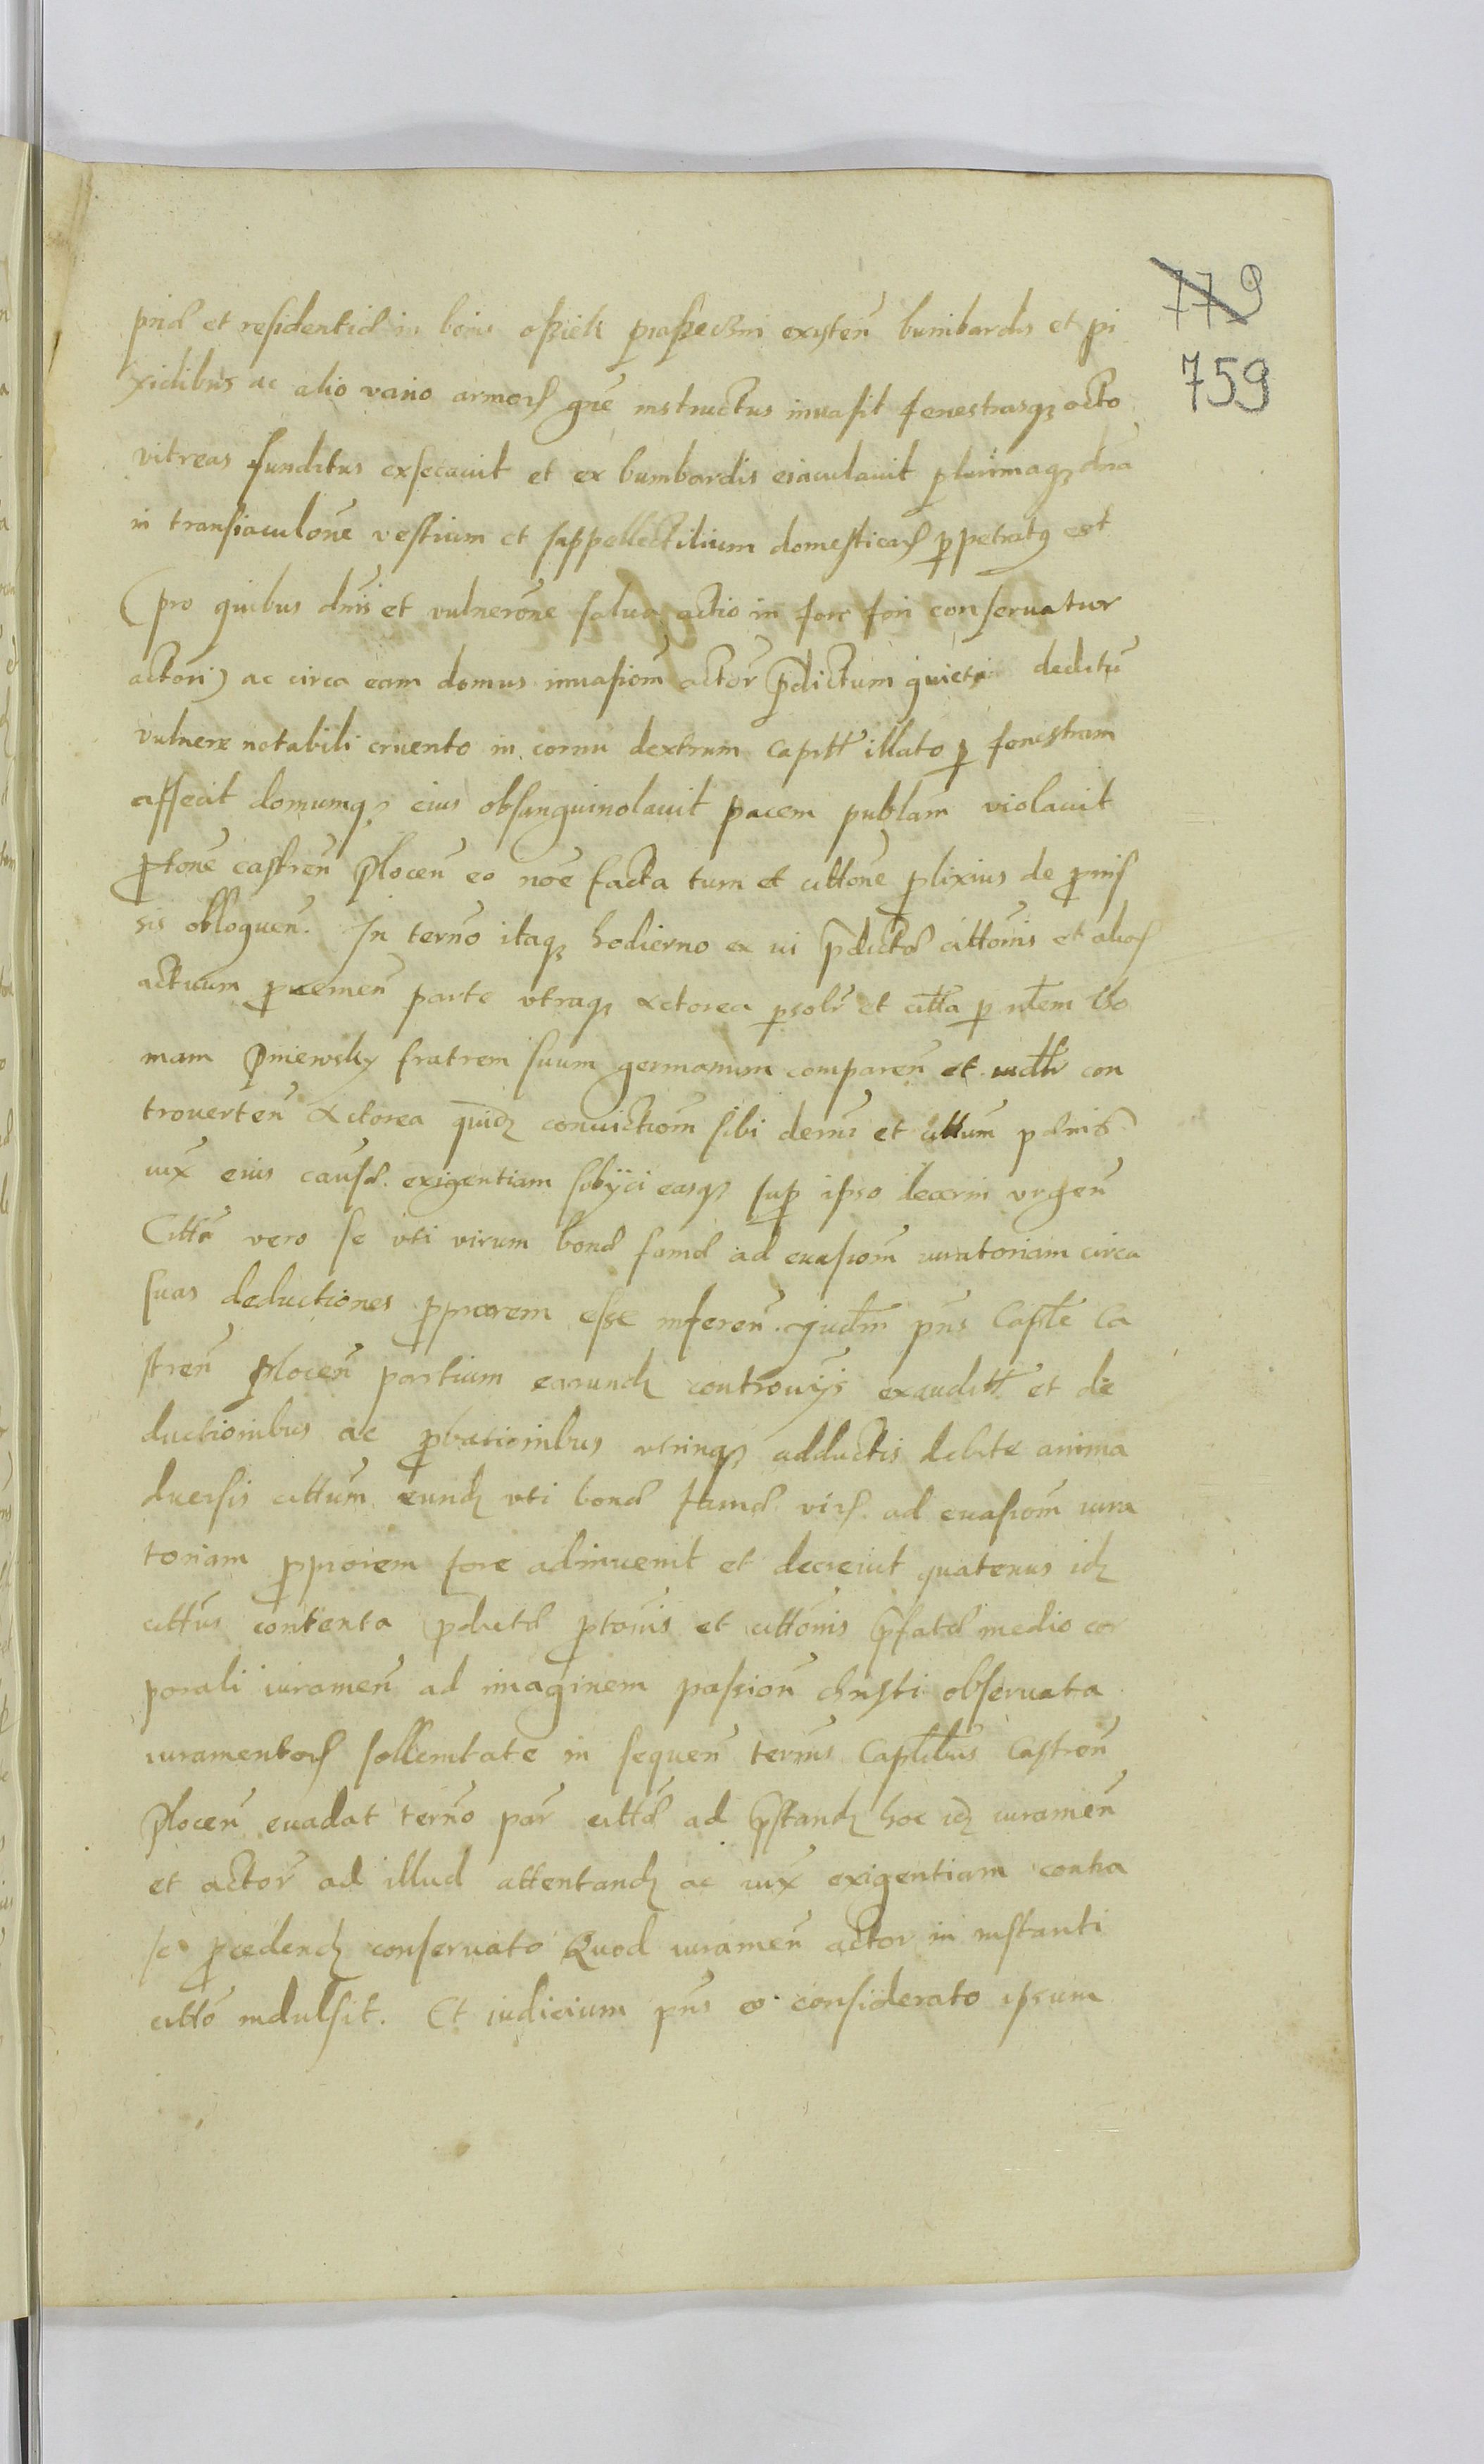 779
759
prid et residentid in bonis osziek praszecznii existeñ bumbardis et pi
xidibus ac alio vario armorꝝ gñe instructus inuasit fenestrasqꝫ octo
vitreas funditus exsecauit et ex bumbardis eiaculauit plurimaqꝫ dna
in transiaculoñe vestium et suppellectilium domesticarꝝ ꝑpetratꝰ est
(pro quibus dnis et vulneroñe salua actio in foro fori conseruatur
actori) ac circa eam domus inuasioñ actoř p̃dictum quiete deditũ
vulnere notabili cruento in cornu dextrum capitt illato ꝑ fenestram
affecit domumqꝫ eius obsanguinolauit pacem publam violauit
ꝓtoñe castreñ Ploceñ eo noẽ facta tum et cittoñe ꝓlixius de p̃mis
sis obloqueñ. In termo itaqꝫ hodierno ex ui p̃dictd cittonis et aliorꝝ
actuum ꝓuenieñ parte vtraqꝫ Actorea ꝑsolr̃ et citta ꝑ nlem tho
mam Pniewsky fratrem suum germanum compareñ et iudlr con
trouerteñ Actorea quidꝫ conuictioñ sibi decerni et cittum
iux eius causd exigentiam sobijci easqꝫ suꝑ ipso decerni vrgeñ
Citta vero se vti virum bond famd ad euasioñ iuratoriam circa
suas deductiones ꝓpiorem esse infereñ. Judm pñs Captle Ca
streñ Ploceñ partium earundꝫ controuijs exauditt et de
ductionibus ac ꝓbationibus vtrinqꝫ adductis debite anima
duersis cittum eundꝫ vti bond famd virꝝ ad euasioñ iura
toriam ꝓpiorem fore adinuenit et decreuit quatenus idꝫ
cittus contenta p̃dictd ꝓtonis et cittonis p̃fatd medio cor
porali iurameñ ad imaginem passioñ christi obseruata
iuramentorꝝ sollemnitate in sequeñ termis Captlibus Castreñ
Ploceñ euadat termo par cittd ad p̃standꝫ hoc idꝫ iurameñ
et actoř ad illud attentandꝫ ac iux exigentiam contra
se ꝓcedendꝫ conseruato Quod iurameñ actor in instanti
citto indulsit. Et iudicium pñs eo considerato ipsum